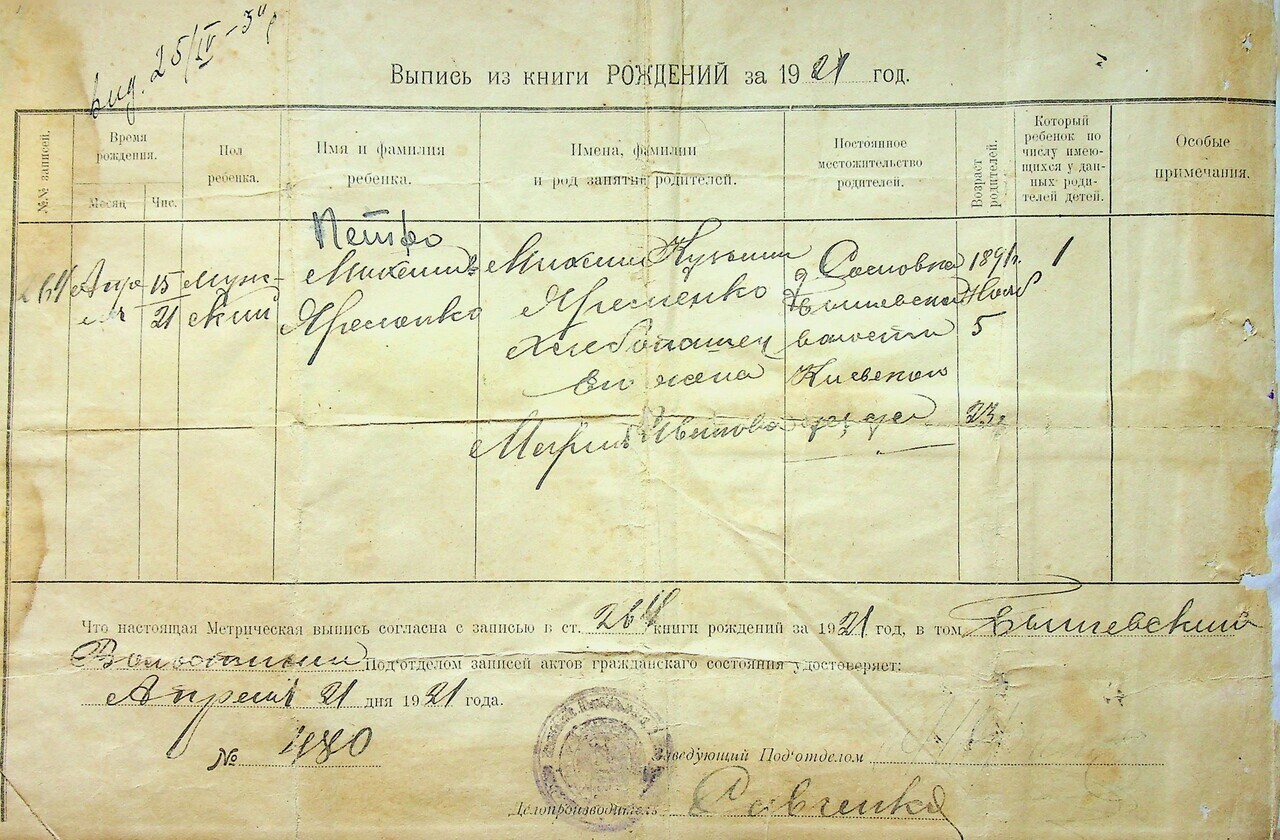 Вид. 25/IV – 3
Выпись из книги РОЖДЕНИЙ за 1921 год.
№№ записей.
Время
рождения.
Месяц
Чис.
Пол
ребенка.
Имя и фамилия
ребенка.
Имена, фамилии
и род занятий родителей.
Постоянное
местожительство
родителей.
Возраст
родителей.
Который
ребенок по
числу имею-
щихся у дан-
ных роди-
телей детей.
Особые
примечания.
Петро
264 Апре- 15 Муж- Михаил Кузьмин д. Сосновка 1891 г. 1
ль 21 ской Яременко Яременко Бышевской Нояб
Хлебопашец волости 5
Его жена Киевского
Мария Ивановна 23
Что настоящая Метрическая выпись согласна с записью в ст. 264 книги рождений за 1921 год, в том Бышевский
Волостный Под'отделом записей актов гражданскаго состояния удостоверяет:
Апреля 21 дня 1921 года.
№ 480
Заведующий Под'отделом
Делопроизводитель Савченко